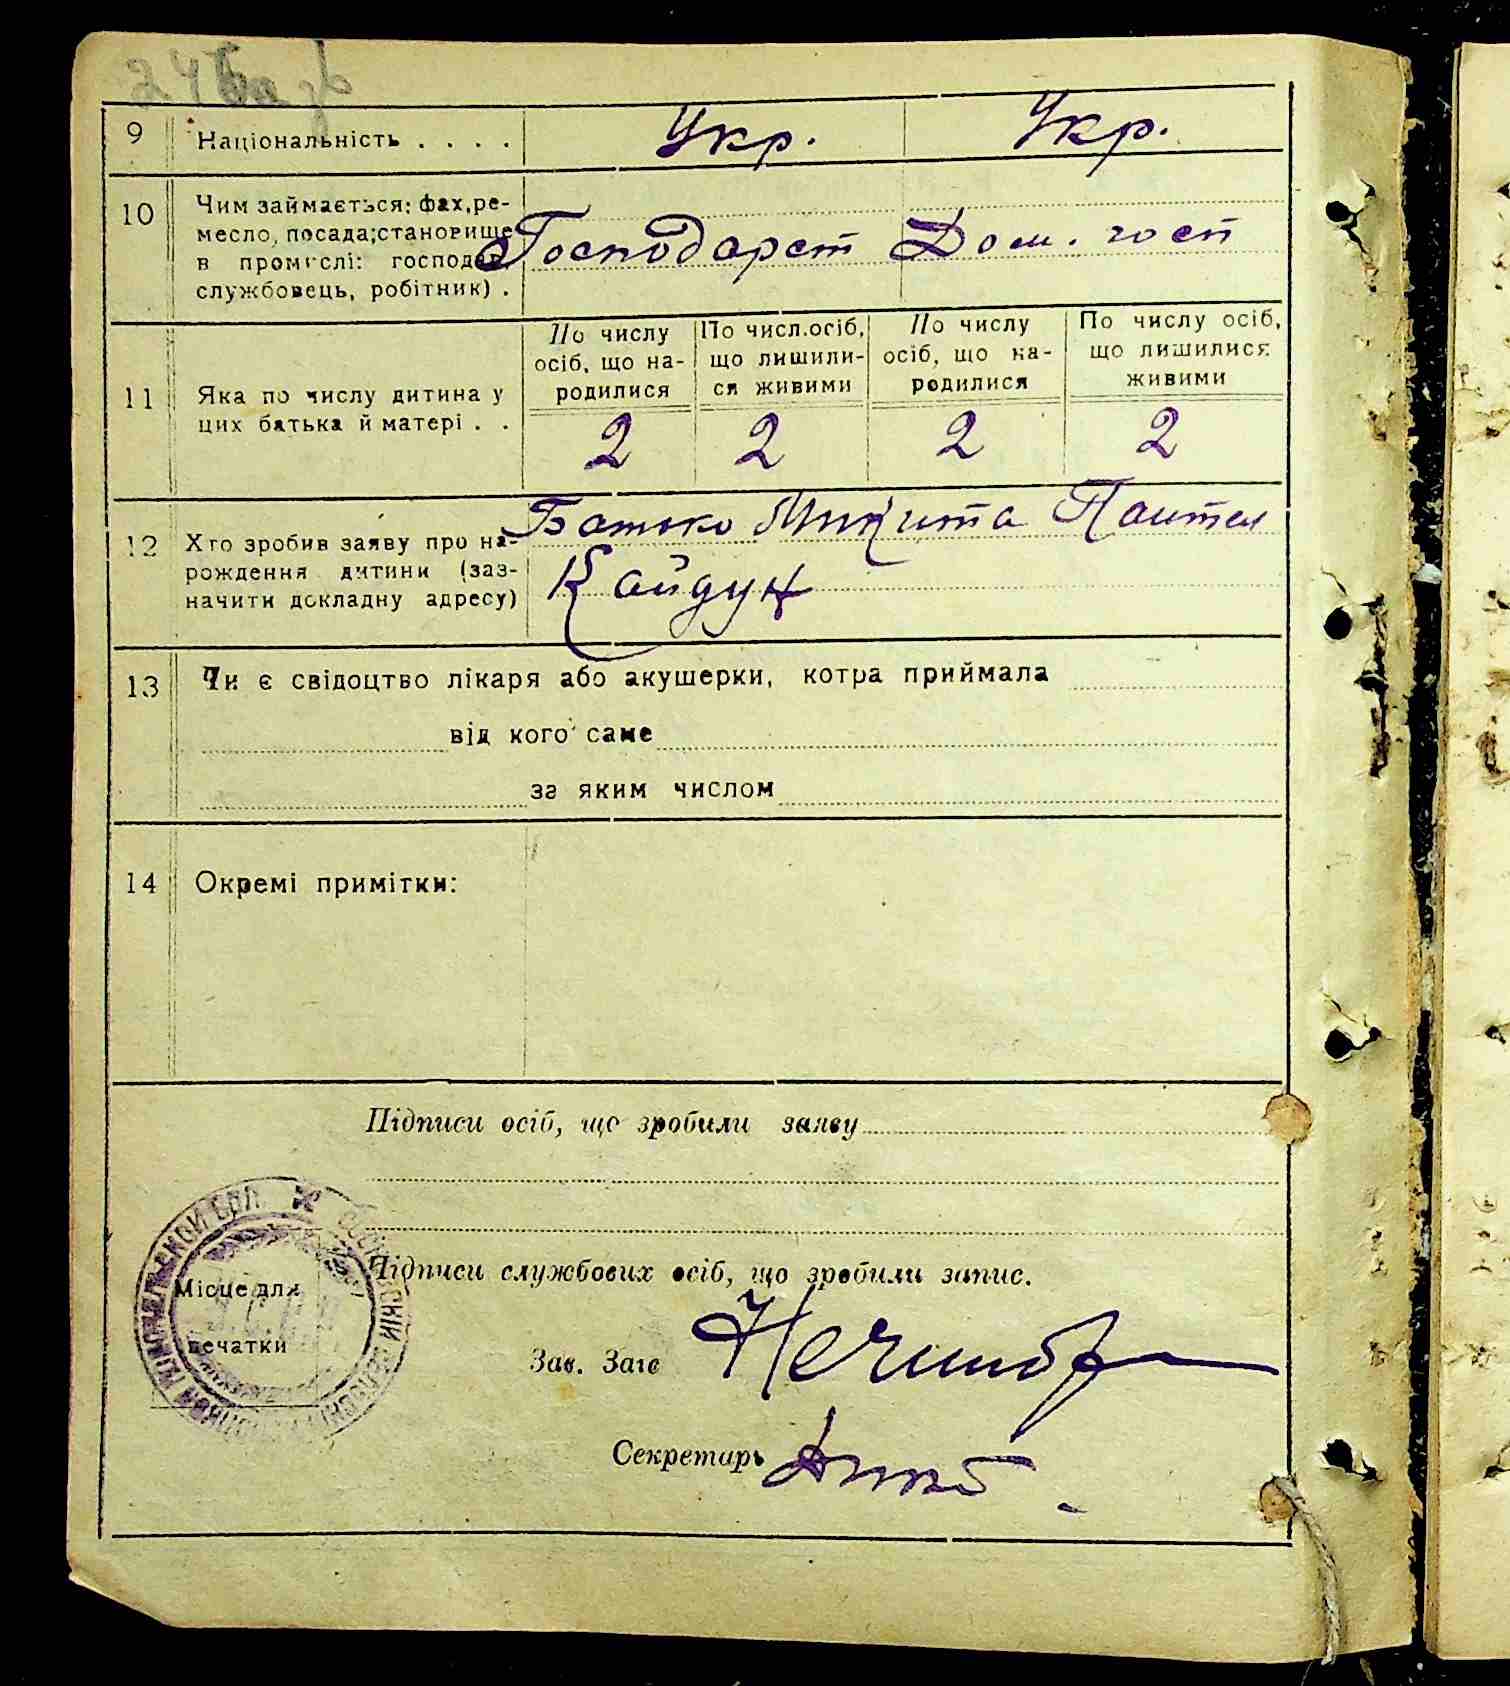 24
9 Національність . . . . Укр. Укр.
10 Чим займається: фах, ре-
месло, посада; становище
в промислі: господар,
службовець, робітник) .
Господарст Дом. госп
По числу осіб, що на-родилися
По числ. осіб, що лишили-ся живими
По числу осіб, що на-родилися
По числу осіб, що лишилися живими
11 Яка по числу дитина у
цих батька й матері . .
2 2 2 2
12 Хто зробив заяву про на-
рождення дитини (заз-
начити докладну адресу)
Батько Микита Пантел
Кайдун
13 Чи є свідоцтво лікаря або акушерки, котра приймала
від кого саме
за яким числом
14 Окремі примітки:
Підписи осіб, що зробили заяву
Підписи службових осіб, що зробили запис.
Місце для
печатки
Зав. Загс
Секретарь